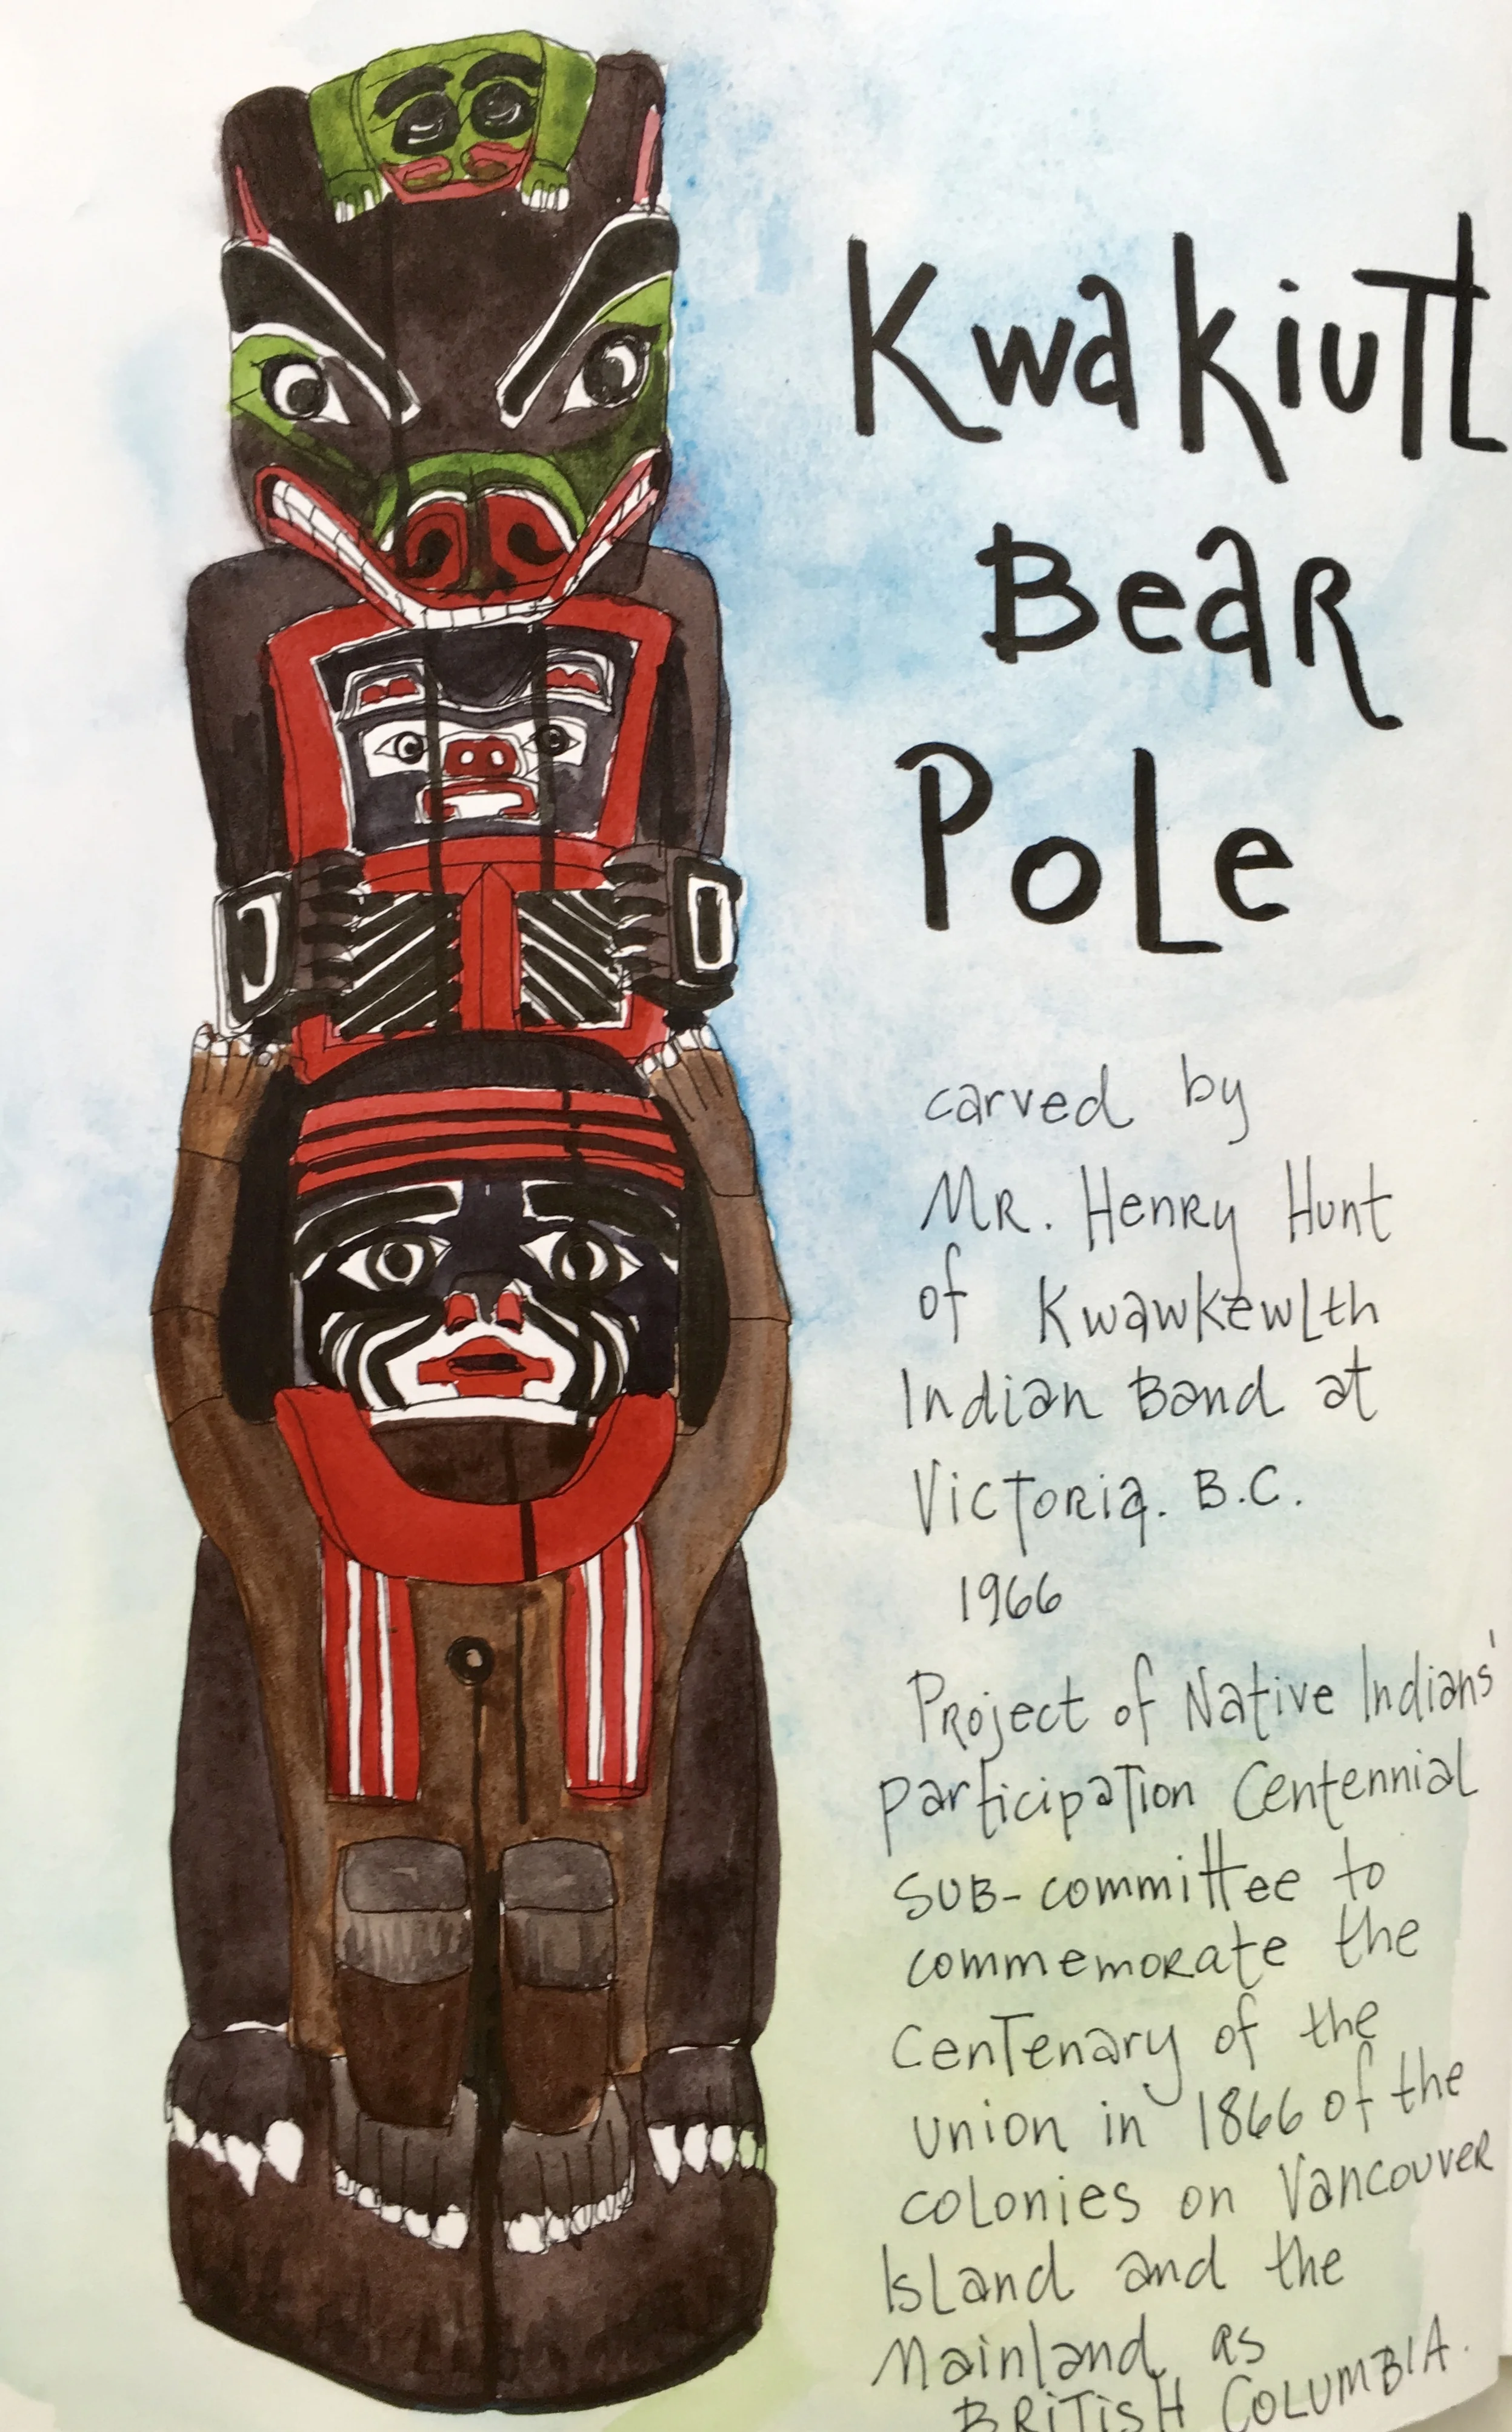 Kwakiutl
Bear
Pole
carved by
Mr. Henry Hunt
of Kwawkewlth
Indian Band at
Victoria. B.C.
1966
Project of Native Indians'
participation Centennial
sub-committee to
commemorate the
centenary of the
union in 1866 of the
colonies on Vancouver
Island and the
Mainland as
BRITISH COLUMBIA.